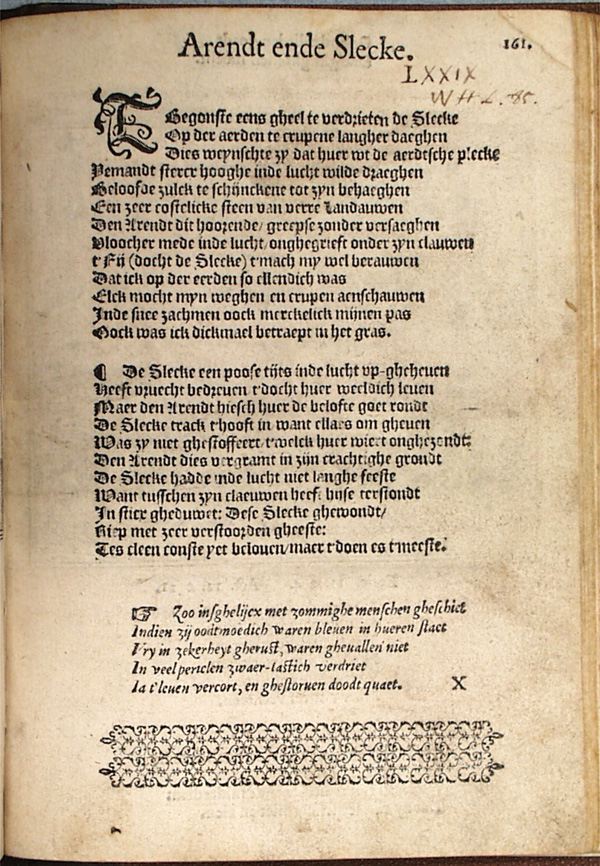 Arendt ende Slecke.
161.
LXXIX
WHL. 85.
TBegonste eens gheel te verdrieten de Slecke
Op der aerden te crupene langher daeghen
Dies weynschte zy dat huer wt de aerdtsche plecke
Yemandt sterer hooghe inde lucht wilde draeghen
Beloofde zulck te schijnckene tot zyn behaeghen
Een zeer costelicke steen van verre Landauwen
Den Arendt dit hoorende/ greepse zonder versaeghen
Vloocher mede inde lucht/ onghegrieft onder zyn clauwen
t'Fij (docht de Slecke) t'mach my wel berauwen
Dat ick op der eerden so ellendich was
Elck mocht myn weghen en crupen aenschauwen
Inde snee zachmen oock merckelick mijnen pas
Oock was ick dickmael betraept in het gras.
¶ De Slecke een poose tijts inde lucht up-gheheven
Heeft vruecht bedreven t'docht huer weeldich leven
Maer den Arendt hiesch huer de belofte goet rondt
De Slecke track t'hooft in want ellaes om gheven
Was zy niet ghestoffeert/ t'welck huer wiert onghezondt:
Den Arendt dies vergramt in zijn crachtighe grondt
De Slecke hadde inde lucht niet langhe feeste
Want tusschen zyn claeuwen heeft hijse terstondt
In sticx gheduwet: Dese Slecke ghewondt/
Riep met zeer verstoorden gheeste:
Tes cleen conste yet beloven/ maer t'doen es t'meeste.
☞ Zoo insghelijcx met zommighe menschen gheschiet
Indien zij oodtmoedich waren bleven in hueren staet
Vry in zekerheyt gherust, waren ghevallen niet
In veel periclen zwaer-lastich verdriet
Ia t'leven vercort, en ghestorven doodt quaet.
X